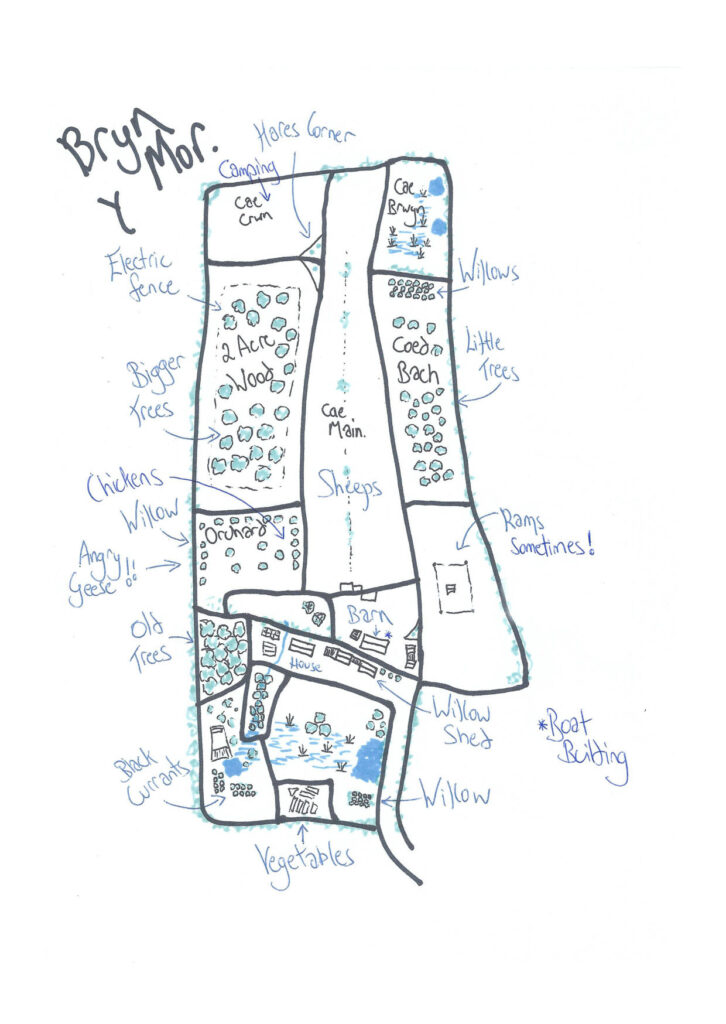 Bryn
Mor.
Y
Hares Corner
Camping
Cae
Crwn
Cae
Brwyn
Electric
fence
Willows
2 Acre
Wood
Coed
Bach
Little
Trees
Bigger
Trees
Cae
Main.
Sheeps
Chickens
Willow
Orchard
Rams
Sometimes!
Angry
Geese!!
Barn
*
Old
Trees
House
Willow
Shed
*Boat
Building
Black
Currants
Willow
Vegetables